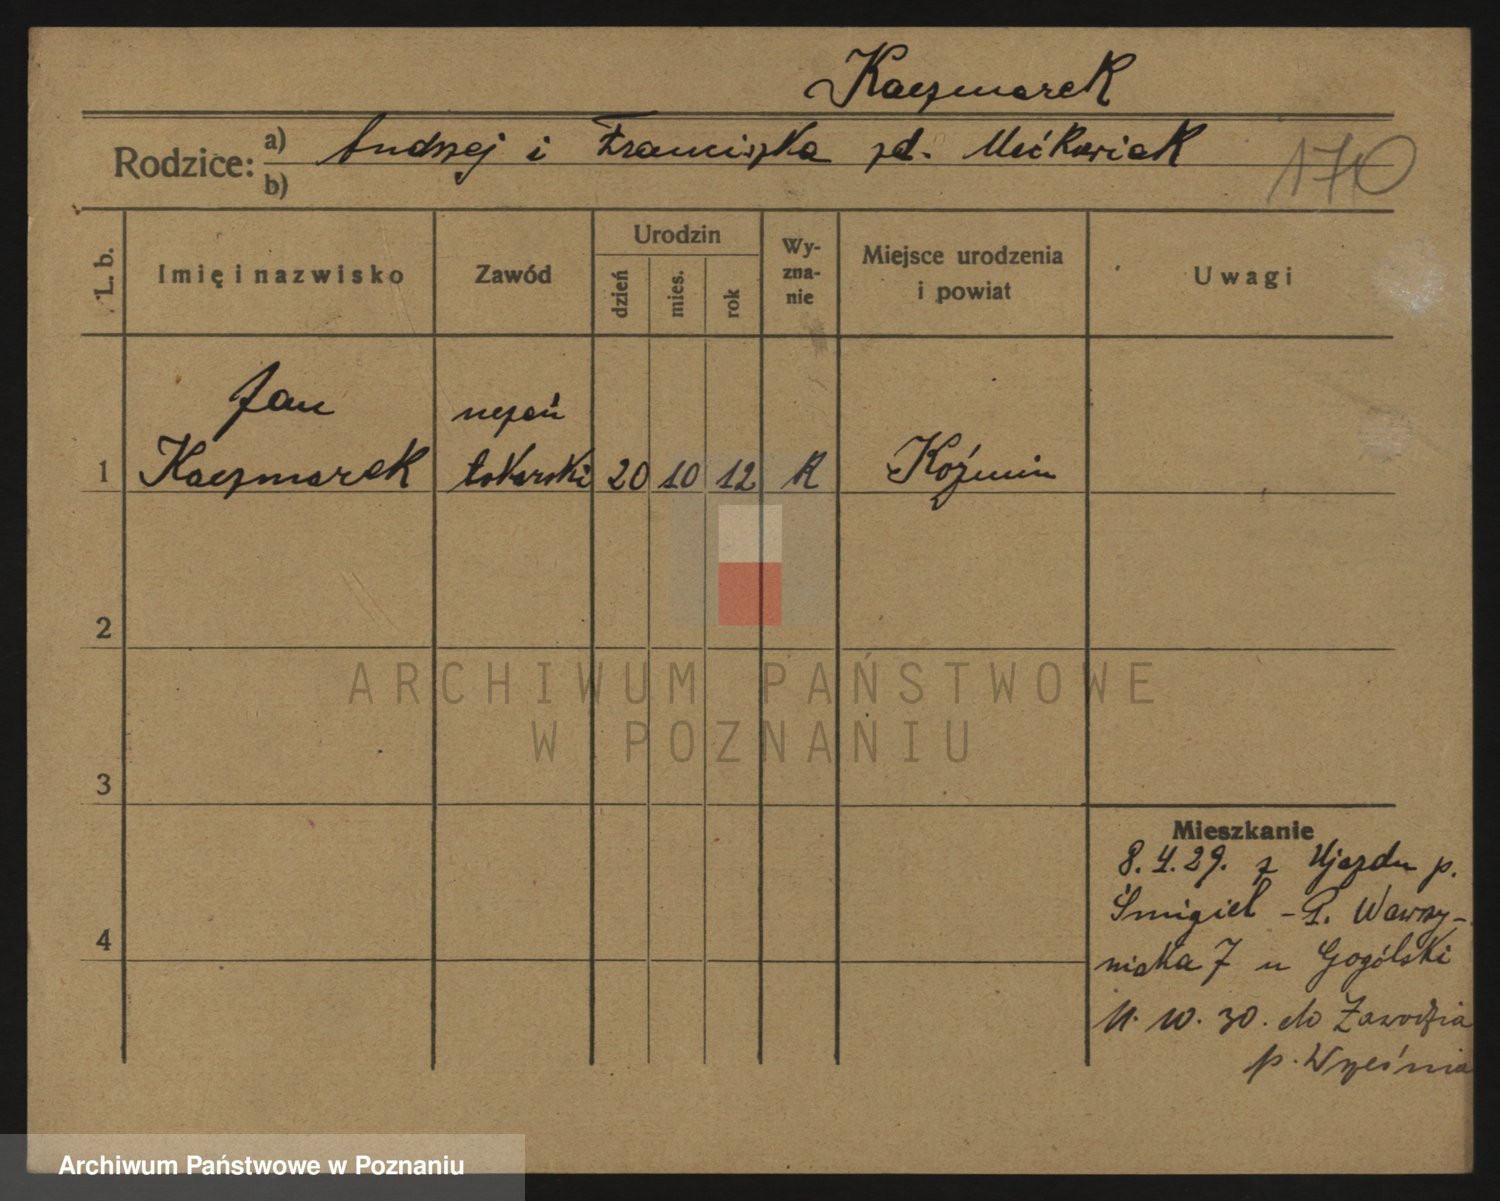 Kaczmarek
Rodzice: a) Andrzej i Franciszka zd. Maćkowiak
b)
170
L. b.
Imię i nazwisko
Zawód
Urodzin
dzień
mies.
rok
Wy-
zna-
nie
Miejsce urodzenia
i powiat
Uwagi
Jan
uczeń
1 Kaczmarek tokarski 20 10 12 k Koźmin
2
ARCHIWUM PAŃSTWOWE
W POZNANIU
3
Mieszkanie
8.4.29. z Ujazdu p.
Śmigiel - P. Wawrzy-
niaka 7 u Gogólski
4
11.10.30. do Zawodzia
p. Września
Archiwum Państwowe w Poznaniu